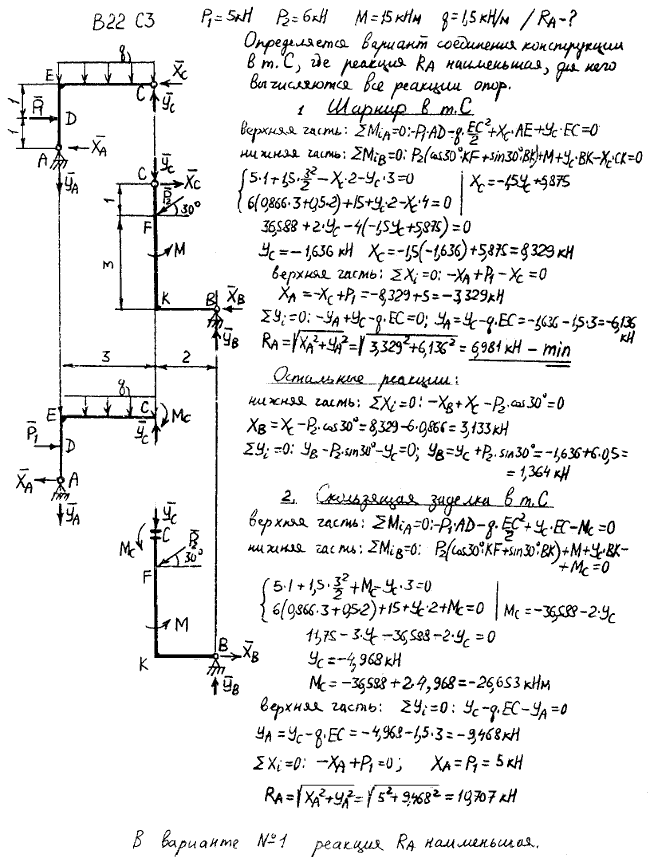 B22 C3 P₁=5кН P₂=6кН M=15кНм q=1,5кН/м / R_A-?
Определяется вариант соединения конструкции
в т. С, где реакция R_A наименьшая, для него
вычисляются все реакции опор.
1 Шарнир в т. С
верхняя часть: ΣM_iA=0: -P₁·AD-q·EC²/2+X_C·AE+Y_C·EC=0
нижняя часть: ΣM_iB=0: P₂(cos30°·KF+sin30°·BK)+M+Y_C·BK-X_C·CK=0
{5·1+1,5·3²/2-X_C·2-Y_C·3=0 | X_C=-1,5Y_C+5,875
6(0,866·3+0,5·2)+15+Y_C·2-X_C·4=0
36,588+2·Y_C-4(-1,5Y_C+5,875)=0
Y_C=-1,636 кН X_C=-1,5(-1,636)+5,875=8,329 кН
верхняя часть: ΣX_i=0: -X_A+P₁-X_C=0
X_A=-X_C+P₁=-8,329+5=-3,329кН
ΣY_i=0: -Y_A+Y_C-q·EC=0; Y_A=Y_C-q·EC=-1,636-1,5·3=-6,136 кН
R_A=√X_A²+Y_A²=√3,329²+6,136²=6,981 кН - min
Остальные реакции:
нижняя часть: ΣX_i=0: -X_B+X_C-P₂·cos30°=0
X_B=X_C-P₂·cos30°=8,329-6·0,866=3,133кН
ΣY_i=0: Y_B-P₂·sin30°-Y_C=0; Y_B=Y_C+P₂·sin30°=-1,636+6·0,5=
=1,364кН
2. Скользящая заделка в т. С
верхняя часть: ΣM_iA=0: -P₁·AD-q·EC²/2+Y_C·EC-M_C=0
нижняя часть: ΣM_iB=0: P₂(cos30°·KF+sin30°·BK)+M+Y_C·BK-
+M_C=0
{5·1+1,5·3²/2+M_C-Y_C·3=0
6(0,866·3+0,5·2)+15+Y_C·2+M_C=0 | M_C=-36,588-2·Y_C
11,75-3·Y_C-36,588-2·Y_C=0
Y_C=-4,968кН
M_C=-36,588+2·4,968=-26,653кНм
верхняя часть: ΣY_i=0: Y_C-q·EC-Y_A=0
Y_A=Y_C-q·EC=-4,968-1,5·3=-9,468кН
ΣX_i=0: -X_A+P₁=0; X_A=P₁=5кН
R_A=√X_A²+Y_A²=√5²+9,468²=10,707кН
В варианте №1 реакция R_A наименьшая.
q
E
C
X_C
Y_C
1
P₁
D
1
A
X_A
Y_A
Y_C
C
X_C
1
P₂
30°
F
M
3
K
B
X_B
Y_B
3
2
q
E
C
M_C
Y_C
P₁
D
X_A
A
Y_A
Y_C
C
M_C
P₂
30°
F
M
K
B
X_B
Y_B